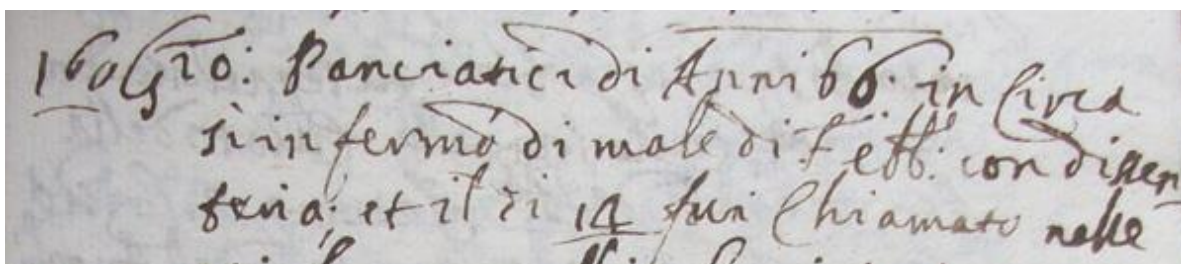 160 Gio: Panciatici di Anni 66: in Circa
si infermò di male di Febb: con dissen
teria; et il di 14 fui Chiamato nelle